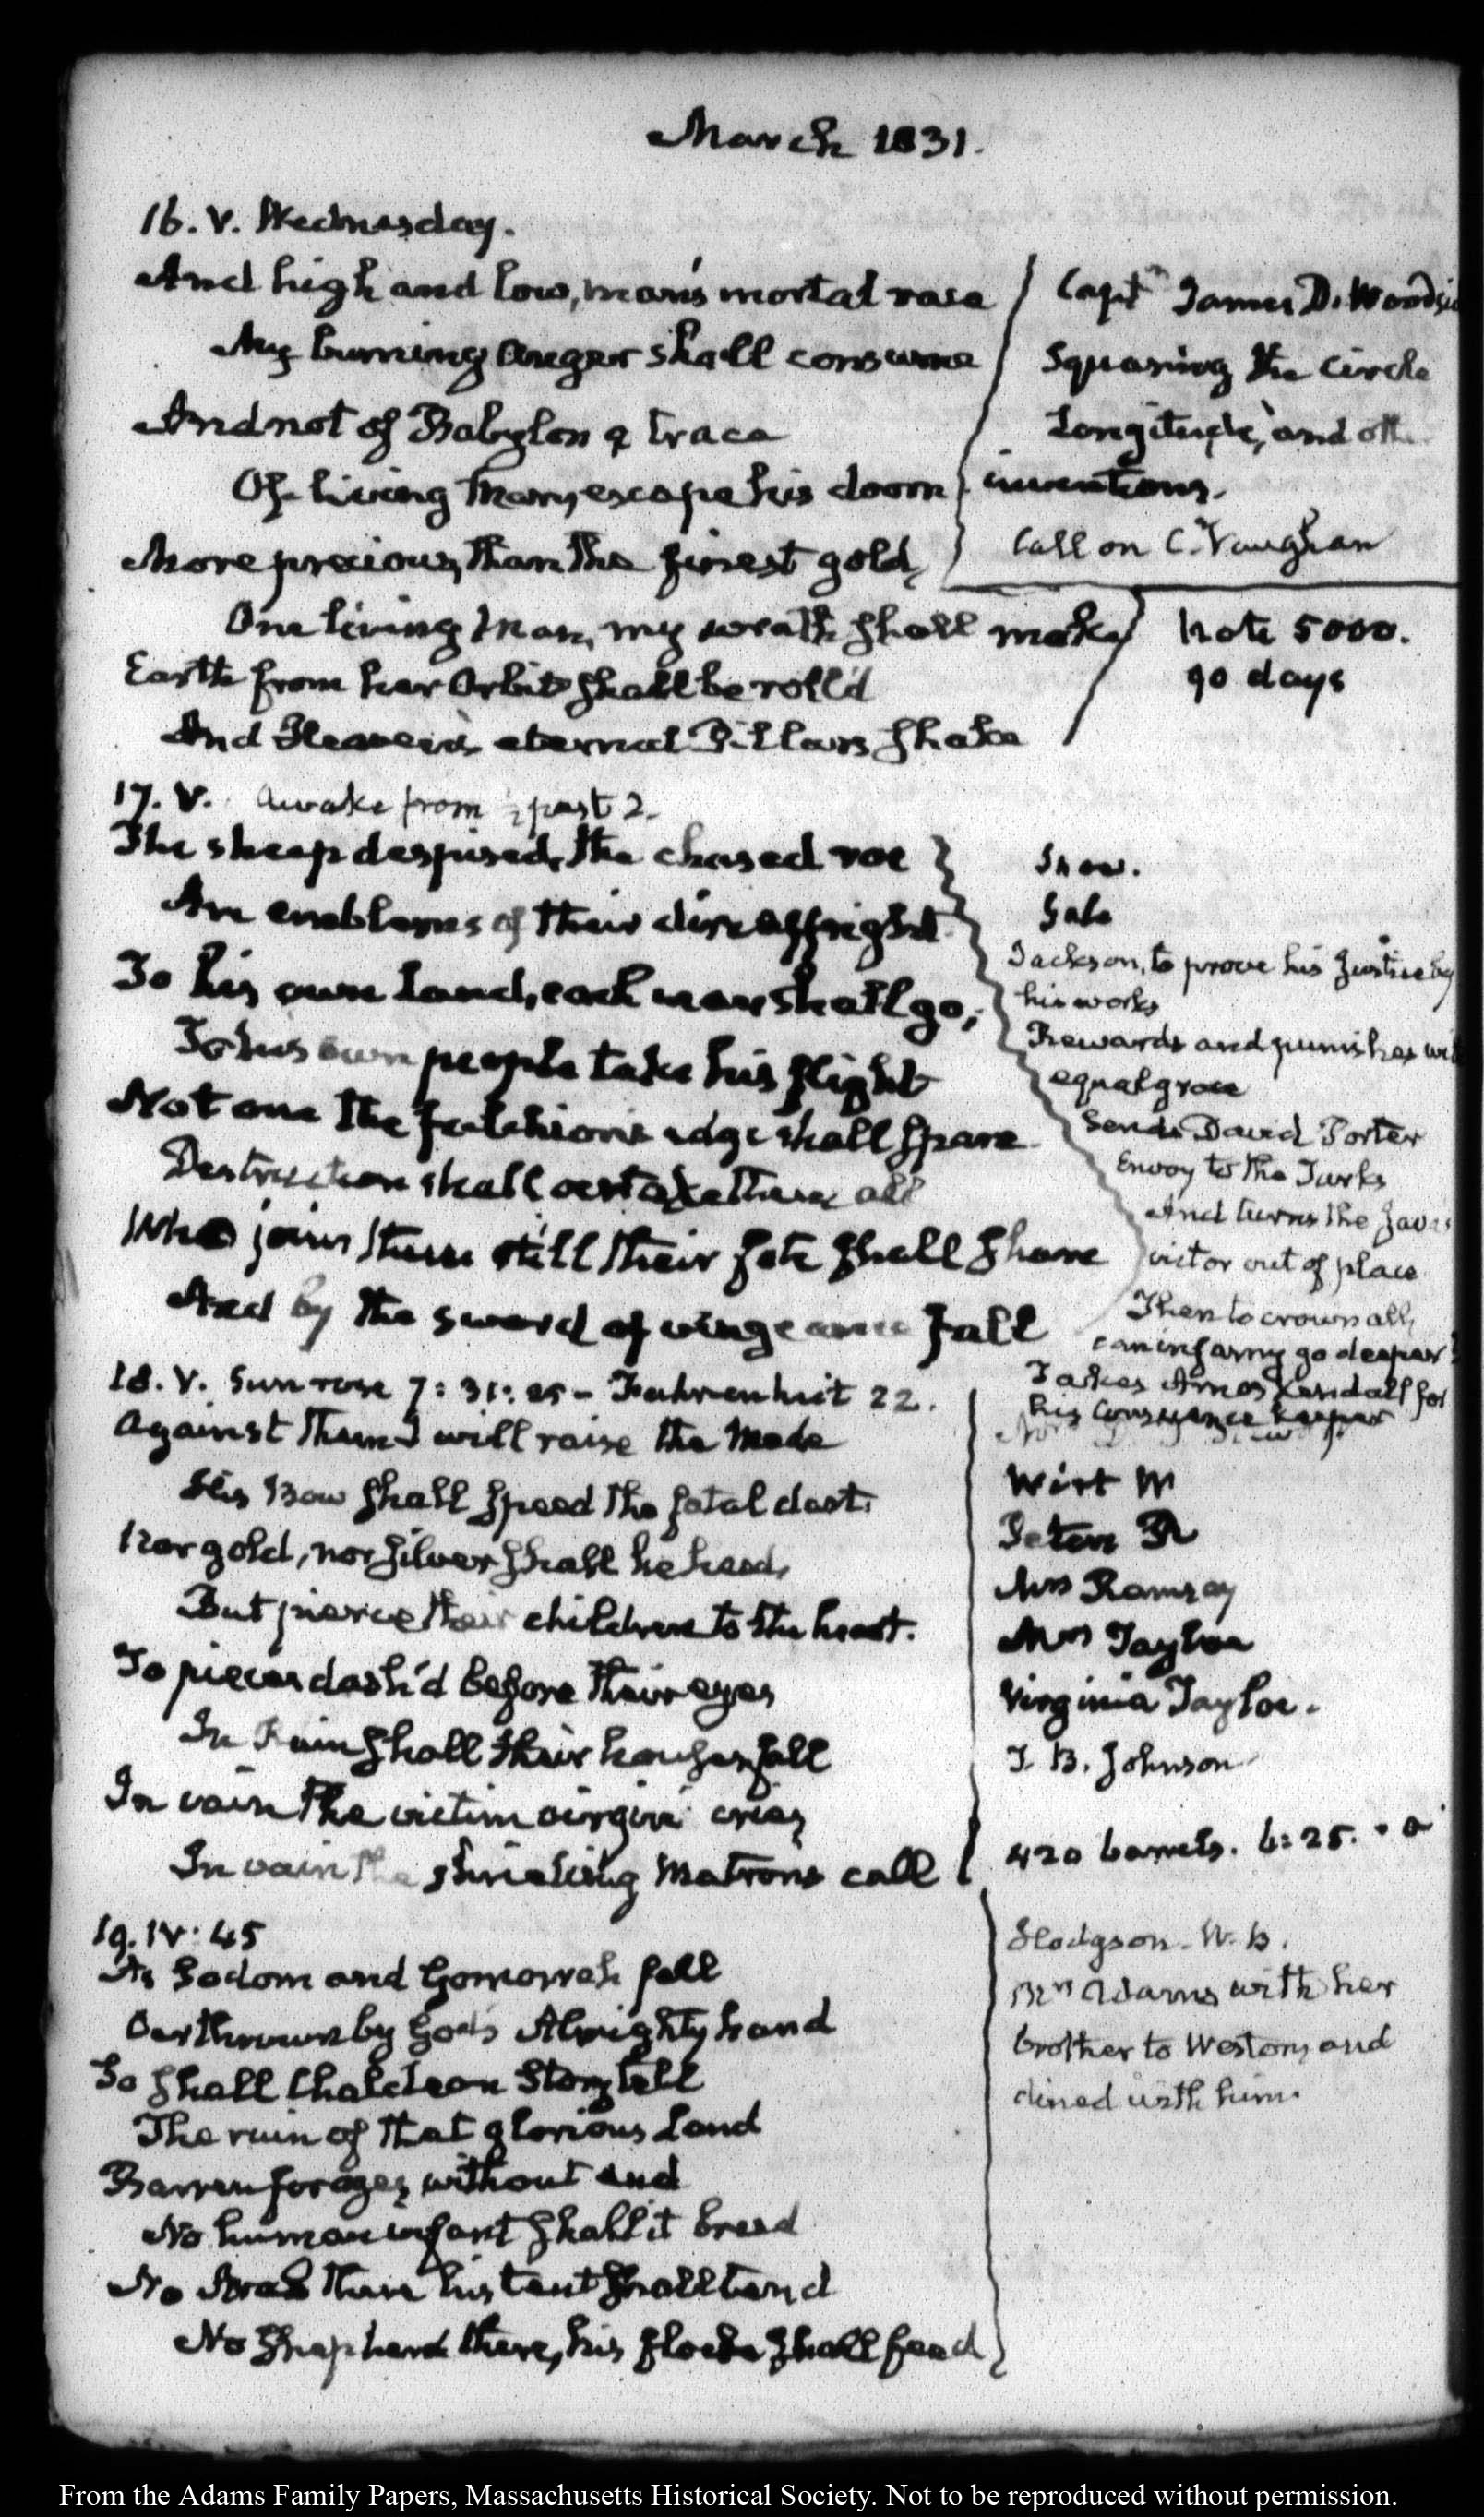 March 1831.
16. V. Wednesday.
And high and low, man's mortal race
My burning anger shall consume
And not of Babylon a trace
Of living Man, escape his doom
More precious, than the finest gold,
One living Man, my wrath shall make
Earth from her Orbit shall be roll'd
And Heaven's eternal Pillars shake
Capt James D. Woodsi
Squaring the circle
Longitude, and oth
inventions.
Call on C. Vaughan
Note 5000.
90 days
17. V. Awake from ½ past 2.
The sheep despised, the chased roe
Are emblems of their dire affright
To his own land, each man shall go,
To his own people take his flight
Not one the falchion's edge shall spare
Destruction shall overtake them all
Who joins them still their fate shall share
And by the sword of vengeance fall
Snow.
Jackson, to prove his justice by
his works
Rewards and punishes wi
equal grace
Sends David Porter
Envoy to the Turks
And turns the
victor out of place
Then to crown all,
can infamy go deeper?
Takes Amos Kendall for
his Conscience keeper
18. V. Sun rose 7: 31: 25 - Fahrenheit 22.
Against them I will raise the Mede
His Bow shall speed the fatal dart.
Nor gold, nor silver shall he heed,
But pierce their children to the heart.
To pieces dash'd before their eyes
In Ruin shall their houses fall
In vain the victim virgin cries
In vain the shrieking Matrons call
Wirt W
Peters R
Mrs Ramsay
Mrs Tayloe
Virginia Tayloe.
J. B. Johnson
420 barrels. 6:25.
19. IV: 45
As Sodom and Gomorrah fell
Overthrown by God's Almighty hand
So shall Chaldean Story tell
The ruin of that glorious Land
Barren for ages, without end
No human infant shall it breed
No Arab there his tent shall tend
No Shepherd there, his flocks shall feed
Hodgson. W. B.
Mrs Adams with her
brother to Weston, and
dined with him.
From the Adams Family Papers, Massachusetts Historical Society. Not to be reproduced without permission.